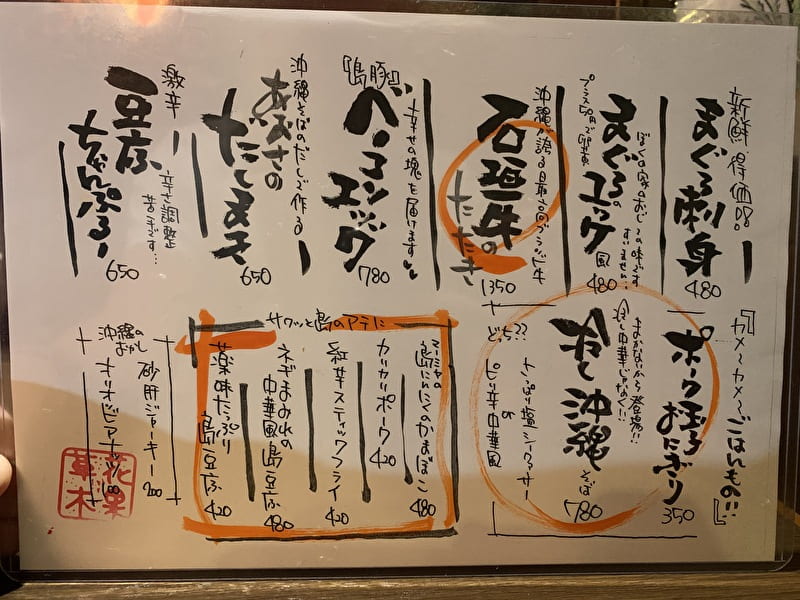 新鮮得価品
まぐろ刺身
480
まぐろのユッケ風
480
沖縄が誇る最高ブランド牛
石垣牛の
たたき
1350
『島豚』
幸せの塊を届けます
ベーコンエッグ
780
沖縄そばのだしで作る
あおさの
だしまき
650
激辛
豆腐
ちゃんぷるー
辛さ調整
苦手です…
650
『カメ〜カメ〜ごはんもの!!』
ポーク玉子おにぎり
350
まかないから登場!!
冷し中華じゃなくい!!
冷し沖縄そば
780
どっち??
さっぱり塩シークヮーサー
or
ピリ辛中華風
サクッと島のアテに
島にんにくのかまぼこ
480
カリカリポーク
420
紅芋スティックフライ
420
ネギまみれの
中華風島豆腐
480
薬味たっぷり
島豆腐
420
砂肝ジャーキー
200
沖縄のおかし
オリオンビアナッツ
100
花果
草木